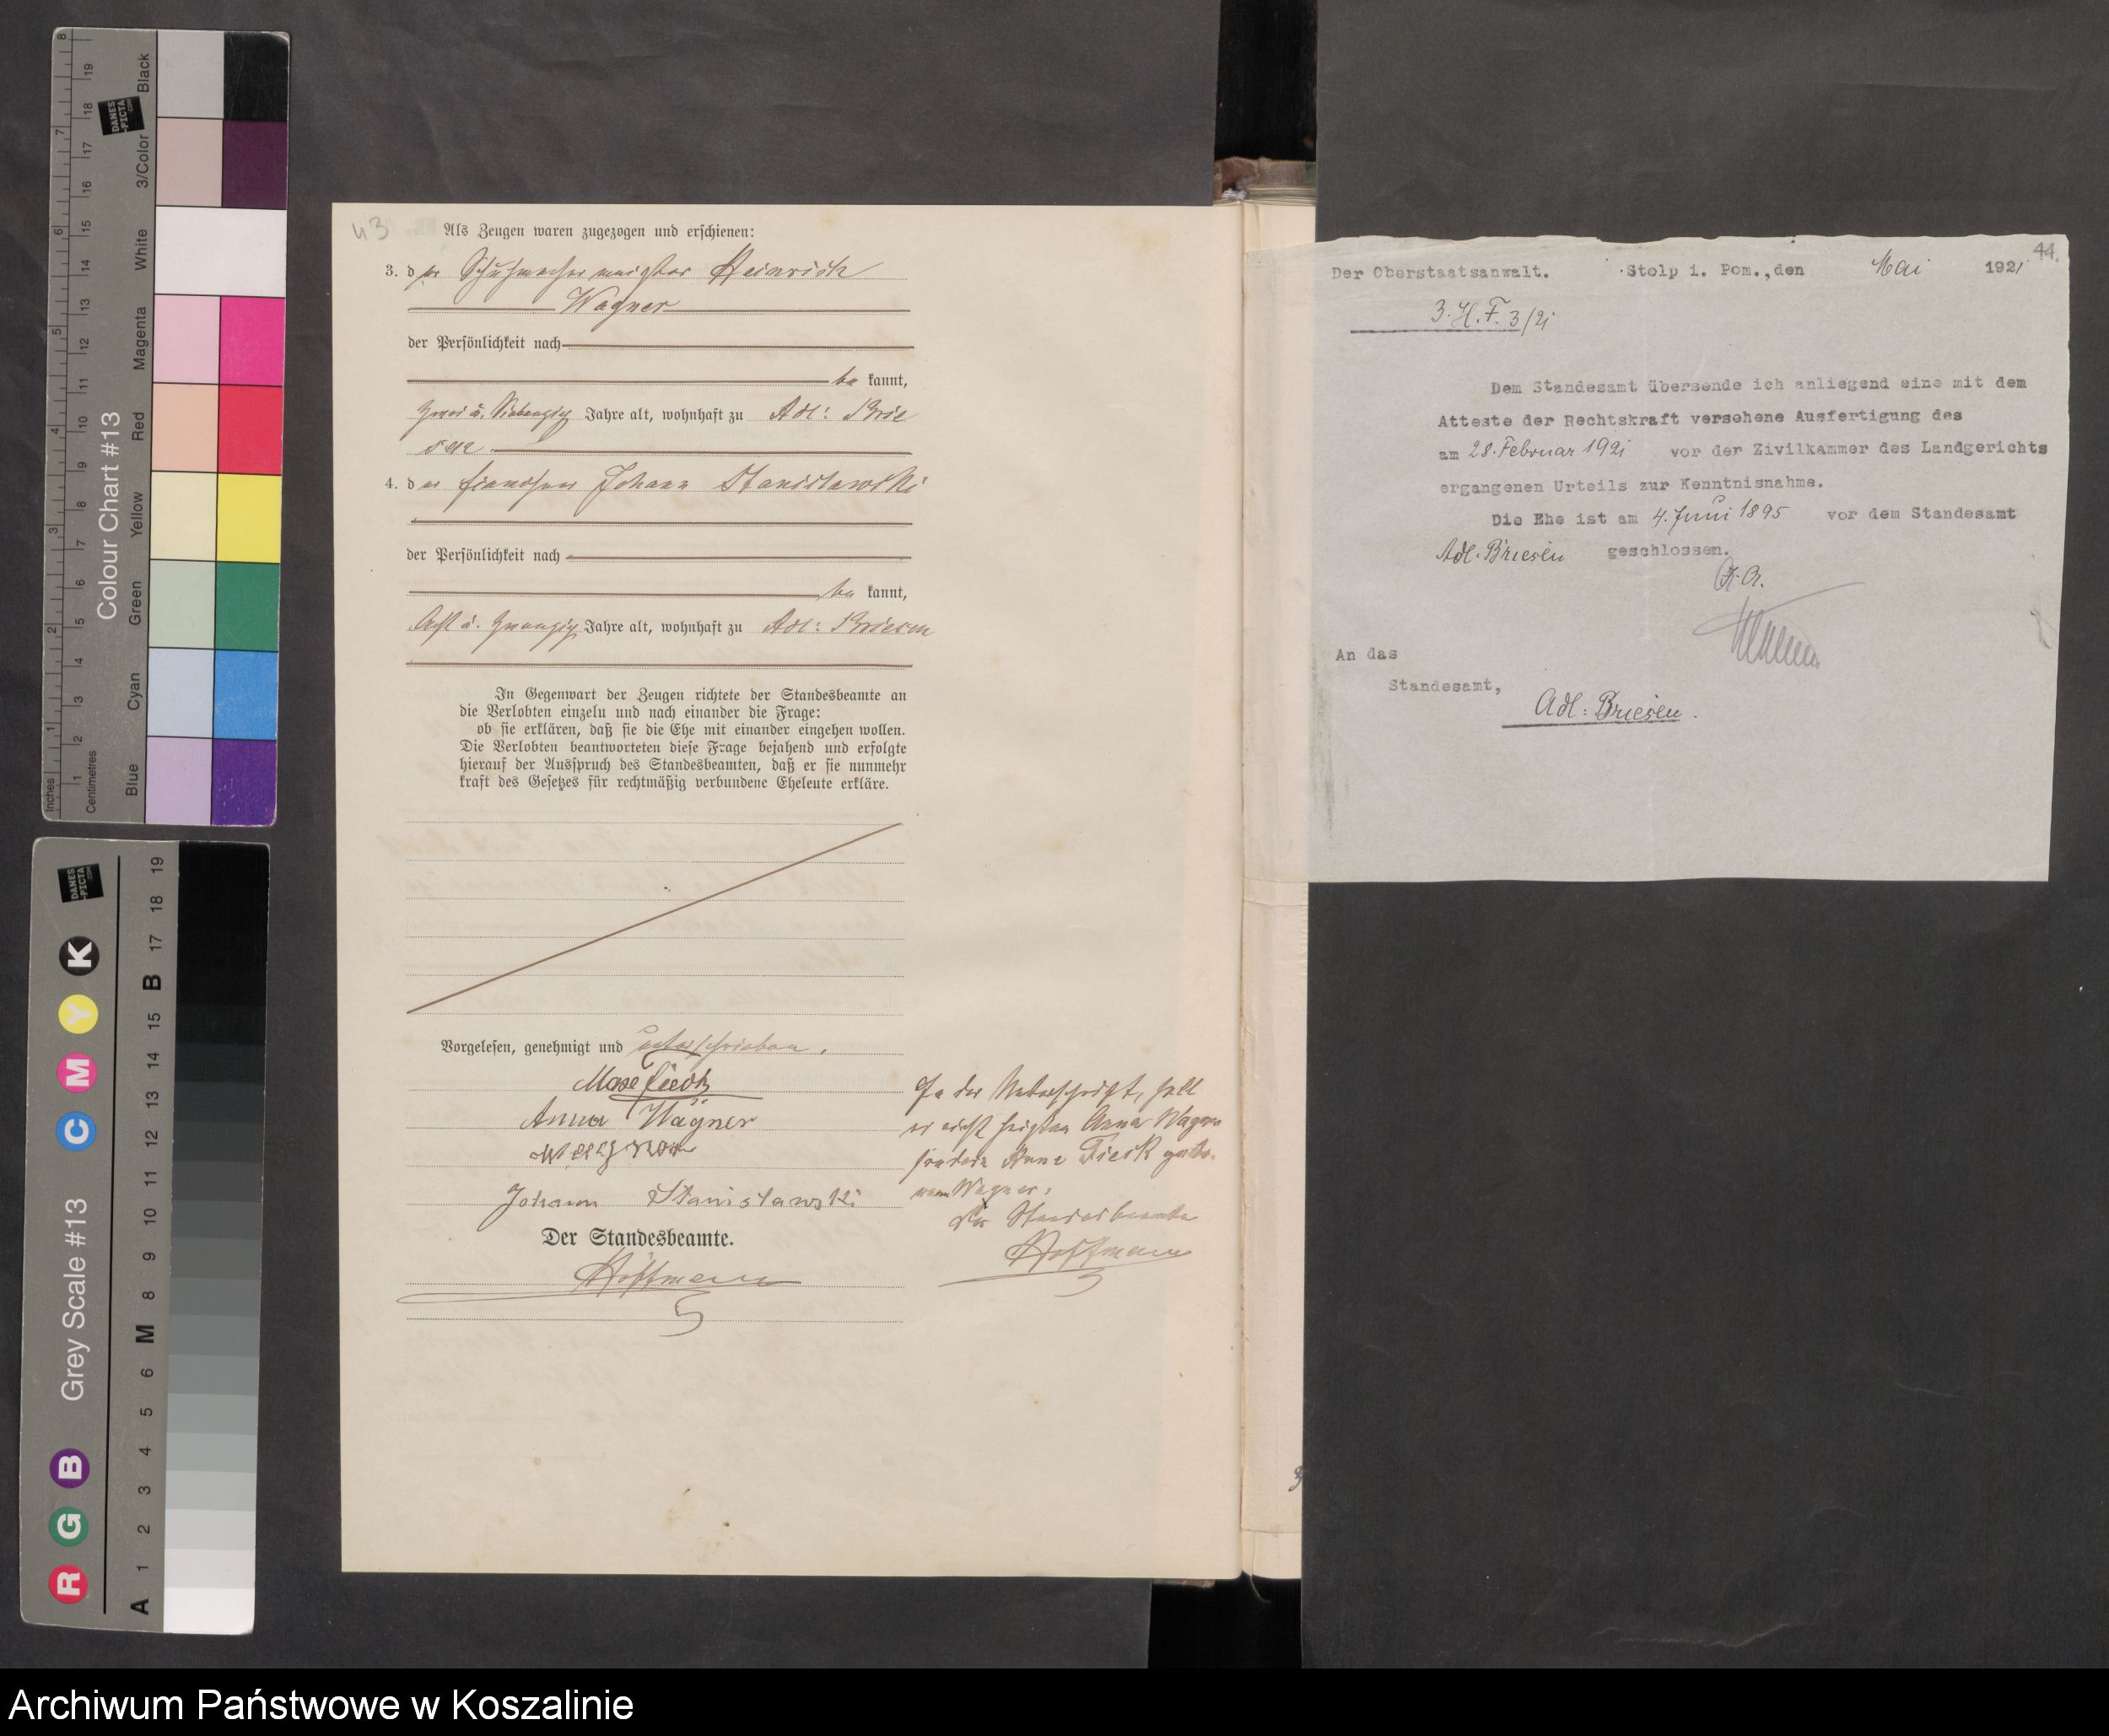 43
Als Zeugen waren zugezogen und erschienen:
3. der Schuhmachermeister Heinrich
Wagner
der Persönlichkeit nach
be kannt,
Zwei u. Siebenzig Jahre alt, wohnhaft zu Adl: Brie
sen
4. der Johann Stanislawski
der Persönlichkeit nach
be kannt,
Acht u. Zwanzig Jahre alt, wohnhaft zu Adl: Briesen
In Gegenwart der Zeugen richtete der Standesbeamte an
die Verlobten einzeln und nach einander die Frage:
ob sie erklären, daß sie die Ehe mit einander eingehen wollen.
Die Verlobten beantworteten diese Frage bejahend und erfolgte
hierauf der Ausspruch des Standesbeamten, daß er sie nunmehr
kraft des Gesetzes für rechtmäßig verbundene Eheleute erkläre.
Vorgelesen, genehmigt und unterschrieben.
Anna Wagner
Wagner
Johann Stanislawski
Der Standesbeamte.
Hoffmann
In der Unterschrift, soll
es nicht heißen Anna Wagner
sondern Anna Tieck gebo-
rene Wagner.
Der Standesbeamte
Hoffmann
44.
Der Oberstaatsanwalt. Stolp i. Pom., den Mai 1921
3. H. F. 3/21
Dem Standesamt übersende ich anliegend eine mit dem
Atteste der Rechtskraft versehene Ausfertigung des
am 28. Februar 1921 vor der Zivilkammer des Landgerichts
ergangenen Urteils zur Kenntnisnahme.
Die Ehe ist am 4. Juni 1895 vor dem Standesamt
Adl. Briesen geschlossen.
An das
Standesamt,
Adl: Briesen.
Colour Chart #13
Inches
Centimetres
Blue Cyan Green Yellow Red Magenta White 3/Color Black
DANES
-PICTA
.COM
Grey Scale #13
R G B C M Y K
A 1 2 3 4 5 6 M 8 9 10 11 12 13 14 15 B 17 18 19
Archiwum Państwowe w Koszalinie